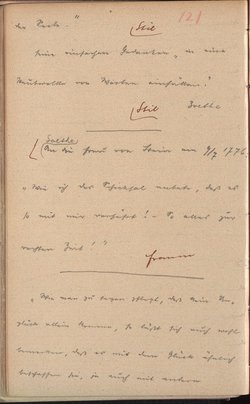 der Rede."
Stil
121
keine einfachen Gedanken, in eine
von Worten einhüllen!
Stil Goethe
Goethe
An Frau von Stein am 9/7 1776.
"Wie ich das Schicksal anbete, daß es
so mit mir verfährt! – So alles zur
rechten Zeit!"
fromm
"Wie man zu sagen pflegt, daß kein Un-
glück allein komme, so läßt sich auch wohl
bemerken, daß es mit dem Glück ähnlich
beschaffen sei, ja auch mit andern